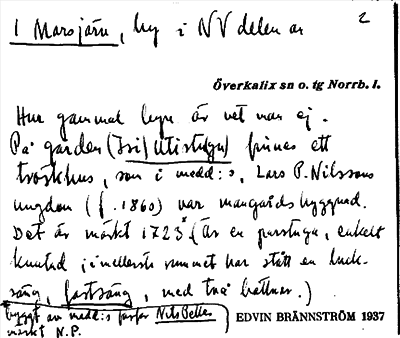 1 Marsjärv, by i NV delen av
2
Överkalix sn o. tg Norrb. l.
Hur gammal byn är vet man ej.
På gården (Isi) Utistugu) finnes ett
tröskhus, som i medd:s, Lars P. Nilssons
ungdom (f. 1860) var mangårdsbyggnad.
Det är märkt 1723 (Är en parstuga, enkelt
knutad, i mellersta rummet har stått en
säng, fastsäng, med två bottnar.)
byggt av medd:s farfar Nils Pelle
märkt N.P.
EDVIN BRÄNNSTRÖM 1937